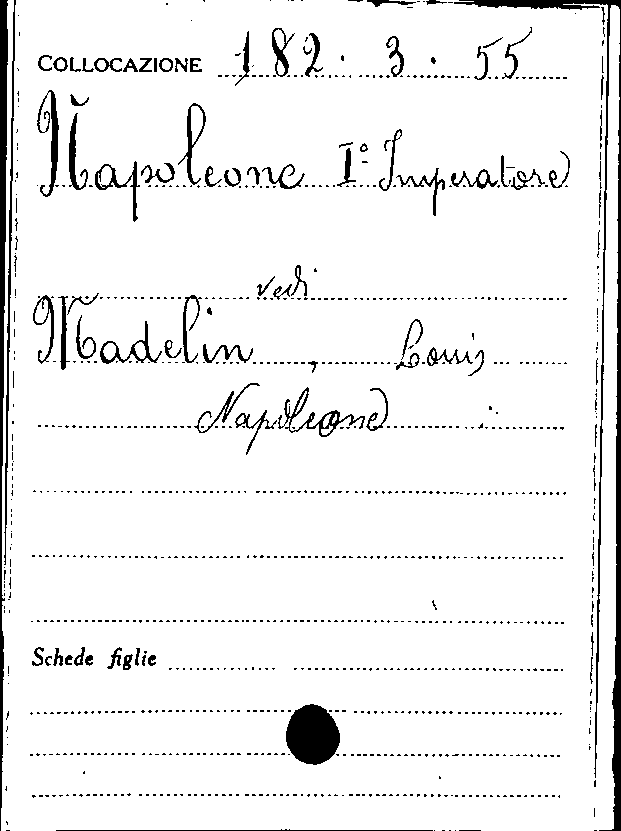 COLLOCAZIONE 182. 3. 55
Napoleone Iº Imperatore
vedi
Madelin, Louis
Napoleone
Schede figlie